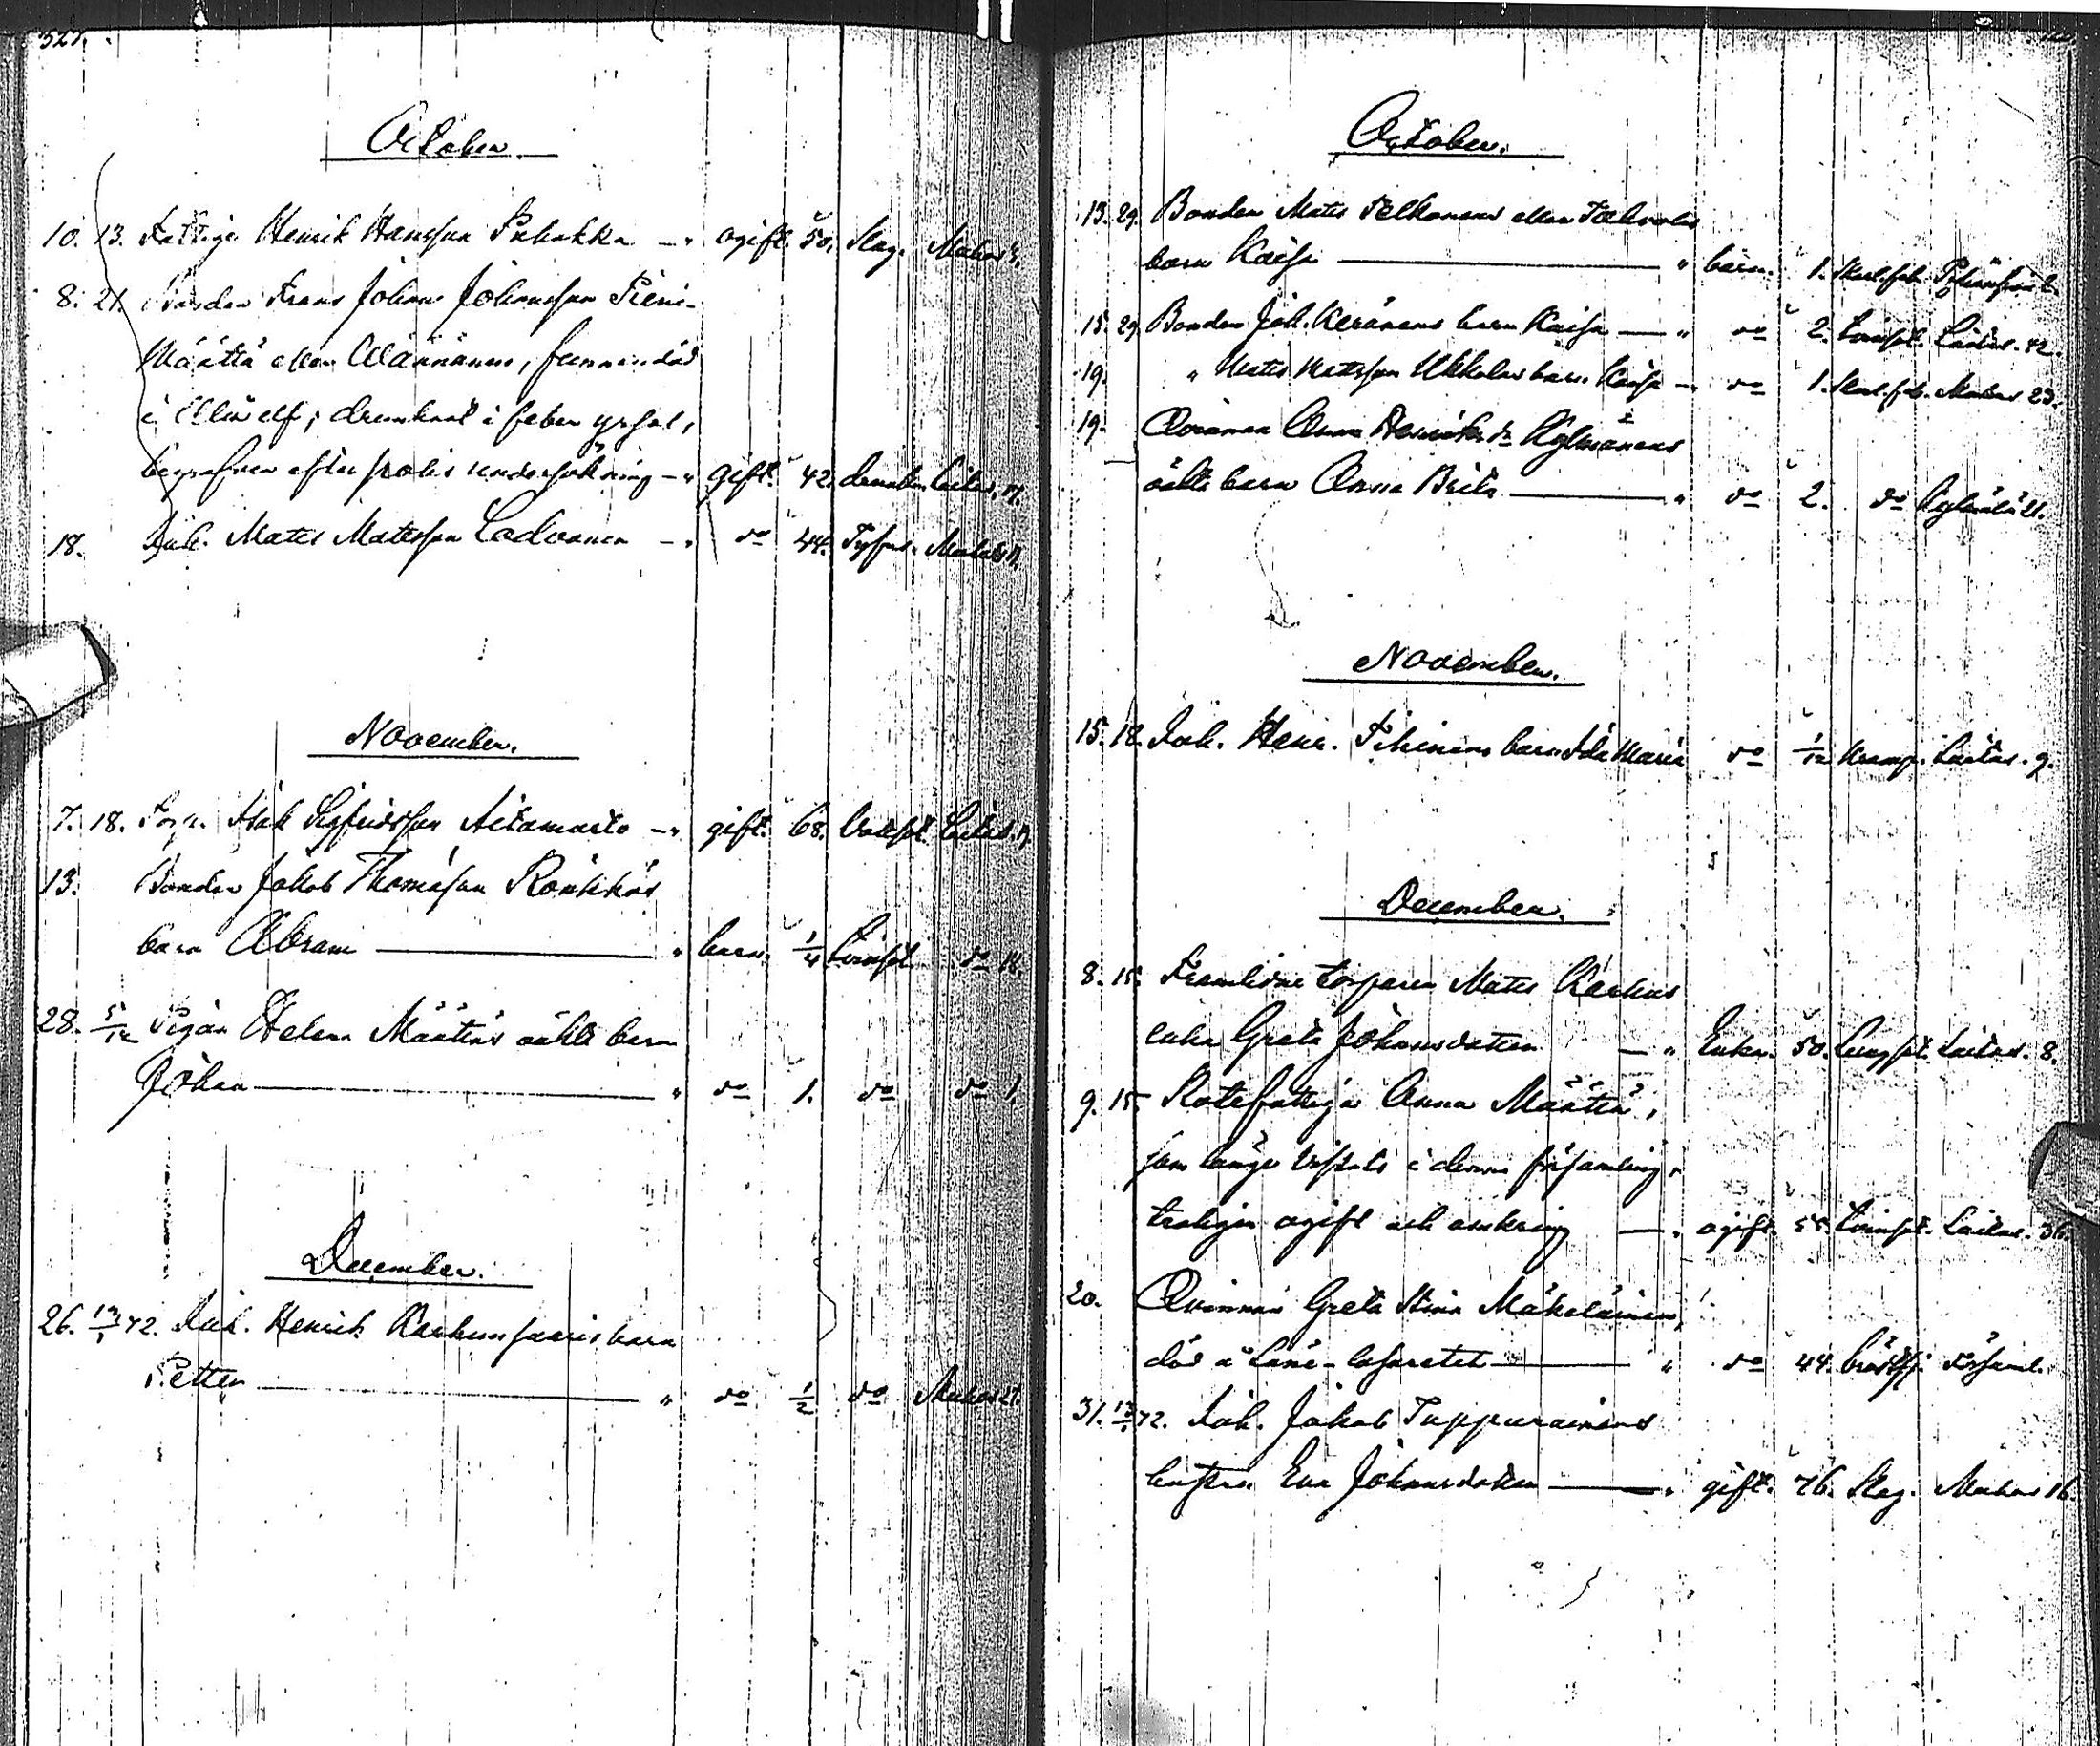 527.
October.
10. 13. Fattige Henrik Hansson Pukakka — " ogift. 50. Slag. Muhos
8. 21. Bonden Frans Johan Johansson Pieni-
Määttä eller Väänänen, funnen död
i Uleå elf; drunknat i feber yrsel,
begrafven efter polis undersökning — " gift. 42. drunkn. Laitas. 17.
18. Inh. Mats Matsson Ladvanen — " do 44. Tyfus. Muhos 17.
November.
7. 18. Torp. Isak Sigfridsson Aitamurto — " gift. 68. Laitas. 17.
13. Bonden Jakob Thomasson Rönkkös
barn Abram — " barn. 1/4 Tvinsot. do 18.
28. 5/12 Pigan Helena Määttäs oäkta barn
Johan — " do 1. do do 1
December.
26. 13/1 72. Inh. Henrik Karhunsaaris barn
Petter — " do 1/2 do Muhos 21.
October.
13. 29. Bonden Mats Pelkonens eller
barn Kaisa — " barn. 1. Skarl.feb.
15. 29. Bonden Joh. Keränens barn Kaisa — " do 2. Tvinsot. Laitas. 42.
19. " Mats Matsson Ukkolas barn Kaisa — do 1. Skarl.feb. Muhos 23.
19. Qvinnan Anna Henriksdr Kylmänens
oäkta barn Anna Brita — " do 2. do Kylmälä 21.
November.
15. 18. Inh. Henr. Tihinens barn Ida Maria do 1/12 Kramp. Laitas. 9.
December.
8. 15. Framlidne torparen Mats Karhus
enka Greta Johansdotter — " Enka. 50. Lungsot. Laitas. 8.
9. 15. Rotefattiga Anna Määttä,
som länge vistats i denna församling,
troligen ogift och omkring — " ogift. 55. Tvinsot. Laitas. 36.
20. Qvinnan Greta Stina Mäkeläinen,
död å Läns-lasarettet — " do 44. Församl.
31. 13/1 72. Inh. Jakob Tuppurainens
hustru Eva Johansdotter — " gift. 76. Slag. Muhos 16.